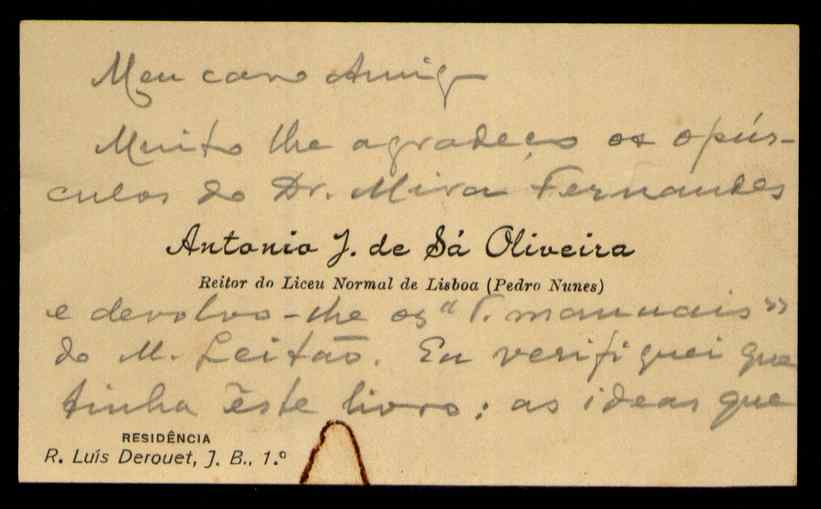 Meu caro Amigo
Muito lhe agradeço os opús-
culos do Dr. Mira Fernandes
Antonio J. de Sá Oliveira
Reitor do Liceu Normal de Lisboa (Pedro Nunes)
e devolvo-lhe os "T. manuais"
do M. Leitão. Eu verifiquei que
tinha êste livro; as ideas que
RESIDÊNCIA
R. Luís Derouet, J. B., 1.º